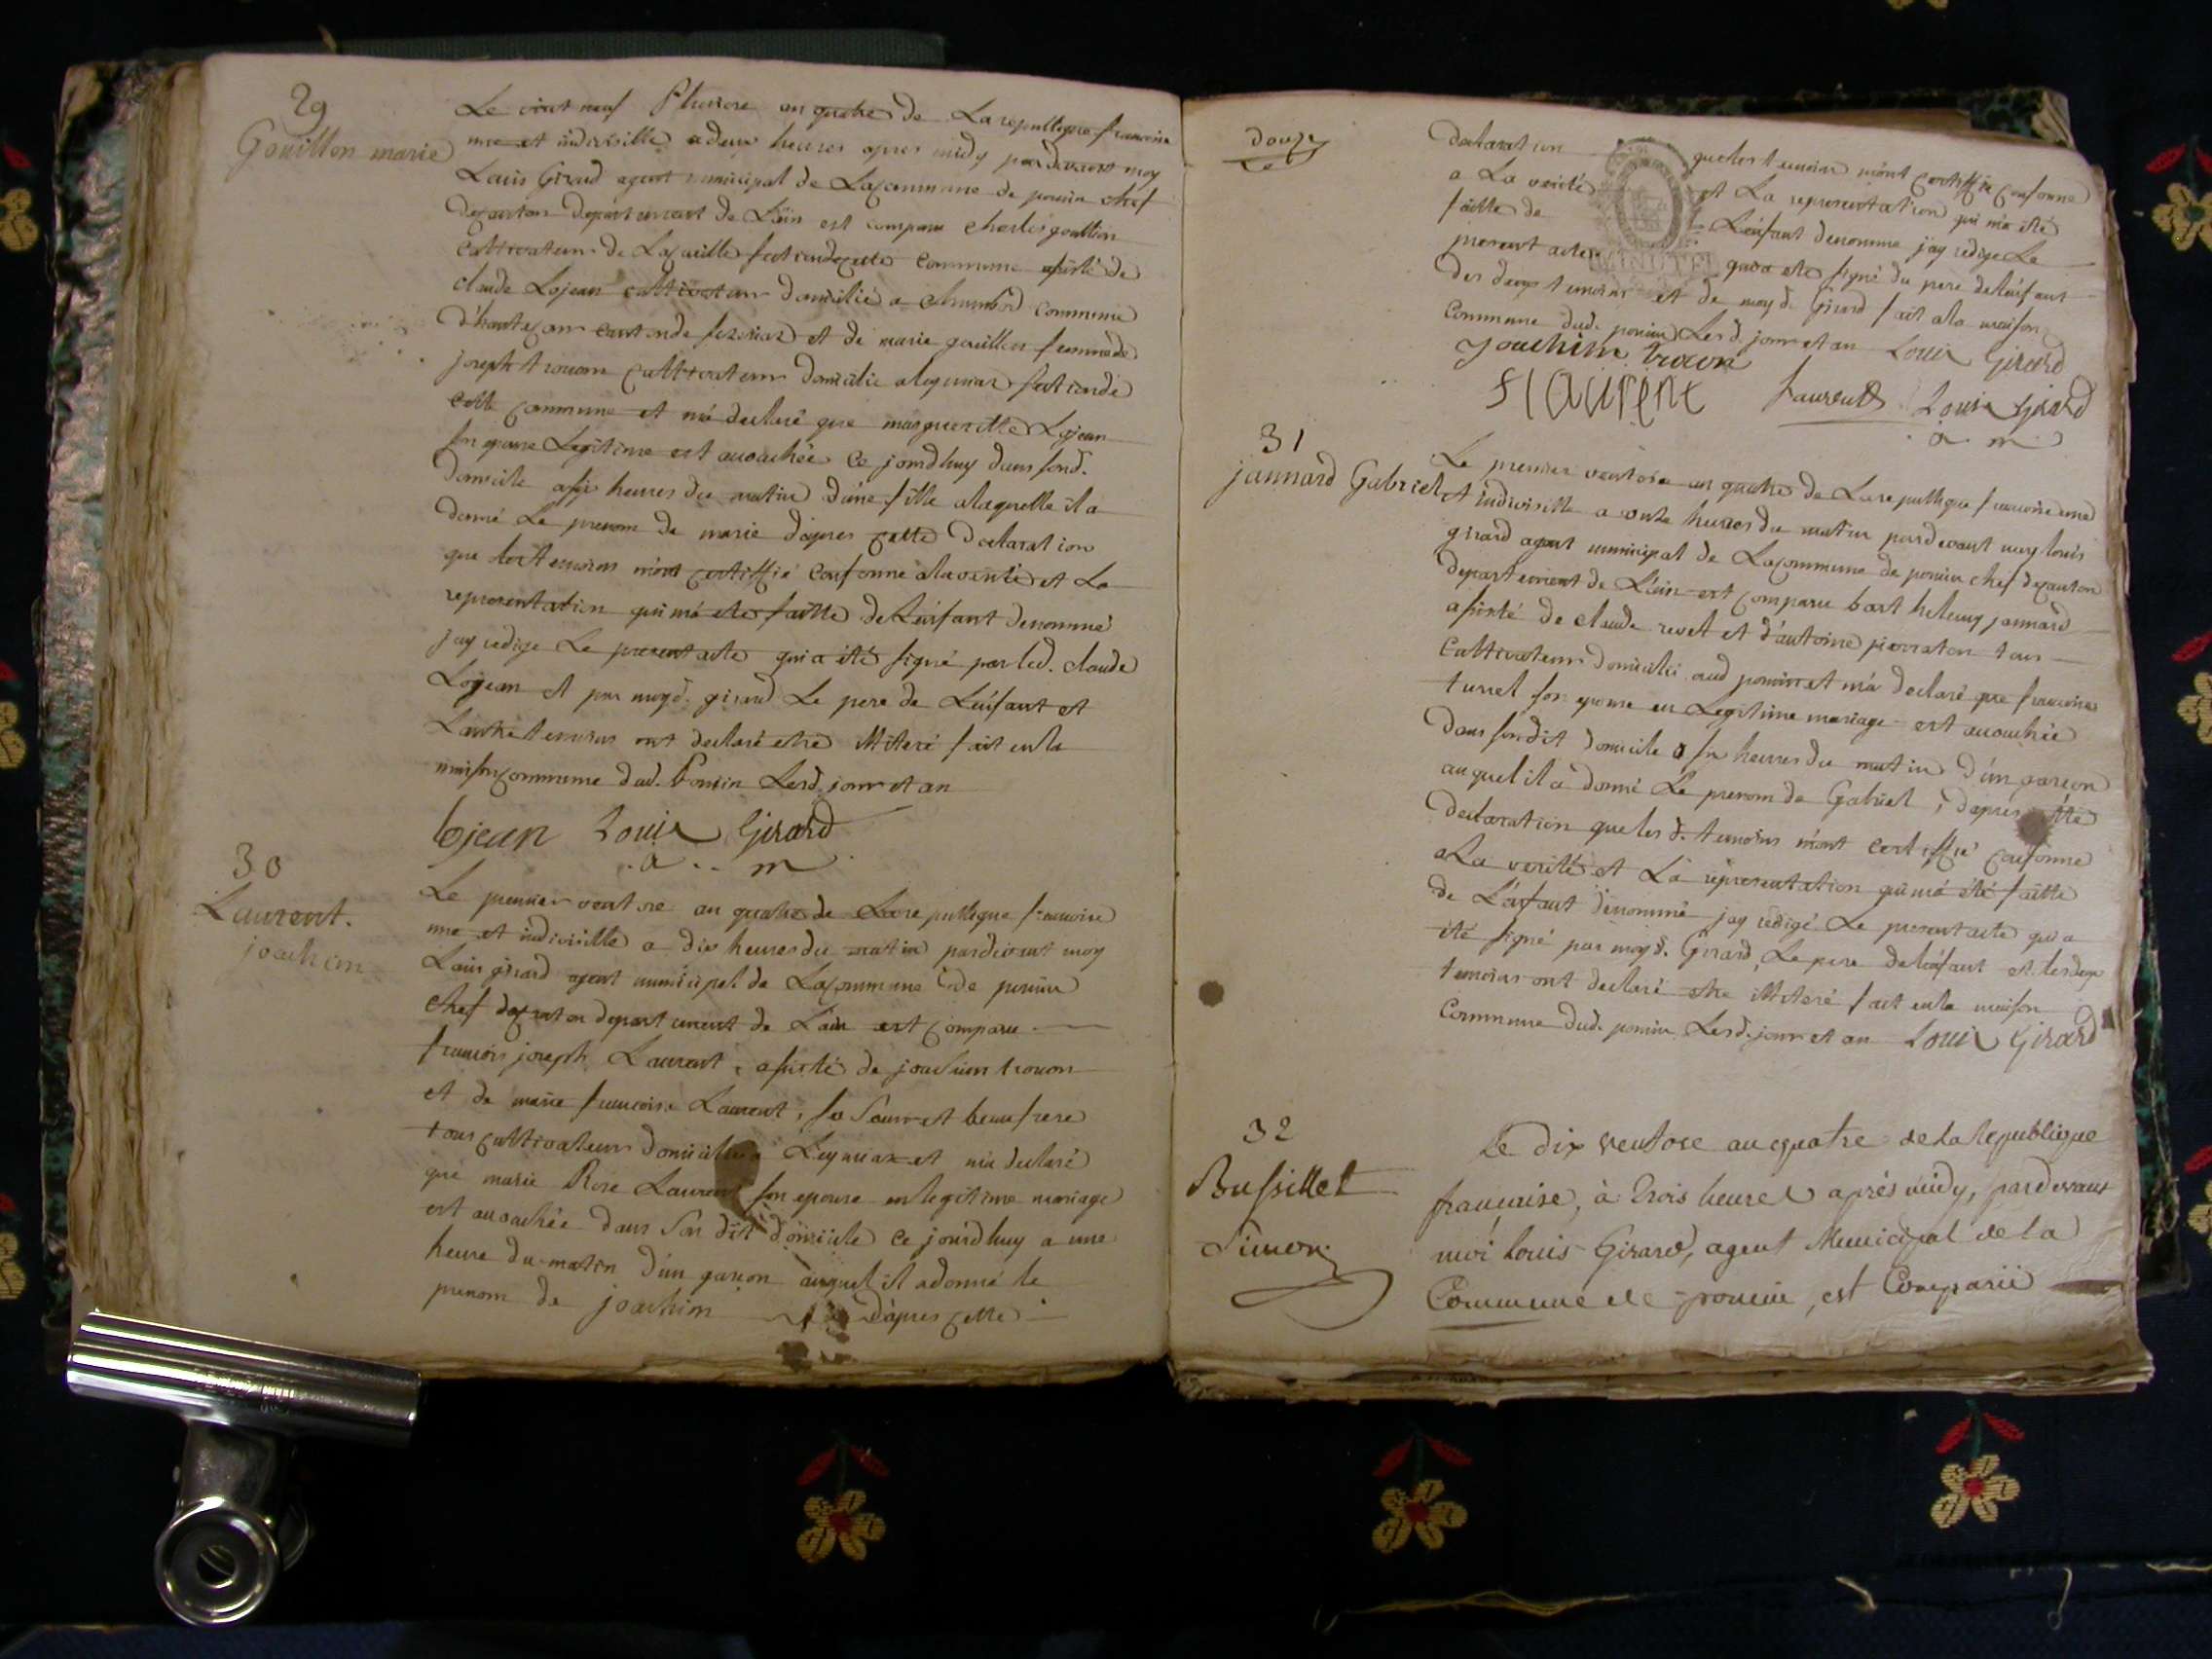 29
Gouillon marie
Le vint neuf Pluviose an quatre de La republique francoise
une et indivisille a deux heures apres midy pardevant moy
Louis Girard agent municipal de La commune de poncin chef
de canton departement de L'ain est comparu charles gouillon
cultivateur de La cueille section de cette commune assisté de
claude Lojean cultivateur domicilié a chambod commune
d'hautecour canton de et de marie gouillon femme de
joseph trocon cultivateur domicilié a leymiat section de
cette commune et m'a declaré que margueritte Lojean
son epouse Legitime est accouchée ce jourdhuy dans sond.
domicile a six heures du matin d'une fille a laquelle il a
donné Le prenom de marie d'apres cette declaration
que les temoins m'ont certiffié conforme a la verité et La
representation qui m'a ete faitte de L'enfant denommé
jay redige Le present acte qui a été signé par led. claude
Lojean et par moyd. girard Le pere de L'enfant et
L'autre temoins ont declaré etre illiteré fait en la
maison commune dud. Poncin Lesd. jour et an
lojean Louis Girard
a.. m
30
Laurent.
joachim
Le premier ventose an quatre de La republique francoise
une et indivisille a dix heures du matin pardevant moy
Louis girard agent municipal de La commune de poncin
chef de canton departement de L'ain est comparu
francois joseph Laurent, assisté de joachim trocon
et de marie francoise Laurent, sa Soeur et beaufrere
tous cultivateurs domiciliés a Leymiat et m'a declaré
que marie Rose Laurent son epouse en legitime mariage
est accouchée dans Son dit domicile ce jourdhuy a une
heure du matin d'un garcon auquel il a donné le
prenom de joachim D'apres cette
douze
declaration que les temoins m'ont certiffié conforme
a La verité et La representation qui m'a été
faitte de L'enfant denomme jay redige Le
present acte qui a ete signé du pere de L'enfant
des deux temoins et de moy d. Girard fait a la maison
commune dud. poncin Lesd. jour et an Louis Girard
joachim trocon
f laurent Laurent Louis Girard
a m
31
jannard Gabriel
Le premier ventose an quatre de La republique francoise une
et indivisille a onze heures du matin pardevant moy louis
girard agent municipal de La commune de poncin chef de canton
departement de L'ain est comparu barthelemy jannard
assisté de claude revel et d'antoine pierraton tous
cultivateurs domiciliés aud poncin et m'a declaré que francoise
turrel son epouse en Legitime mariage est accouchée
dans son dit domicile a six heures du matin d'un garcon
auquel il a donné Le prenom de Gabriel, d'apres cette
declaration que les d. temoins m'ont certiffié conforme
a La verité et La representation qui m'a été faitte
de L'enfant denommé jay redigé Le present acte qui a
été signé par moy d. Girard, Le pere de l'enfant et les deux
temoins ont declaré etre illiteré fait en la maison
commune dud. poncin Les d. jour et an Louis Girard
32
Bussillet
Simon
Le dix ventose an quatre de la republique
française, à trois heures après midy, pardevant
moi louis Girard, agent Municipal de la
Commune de poncin, est Comparû